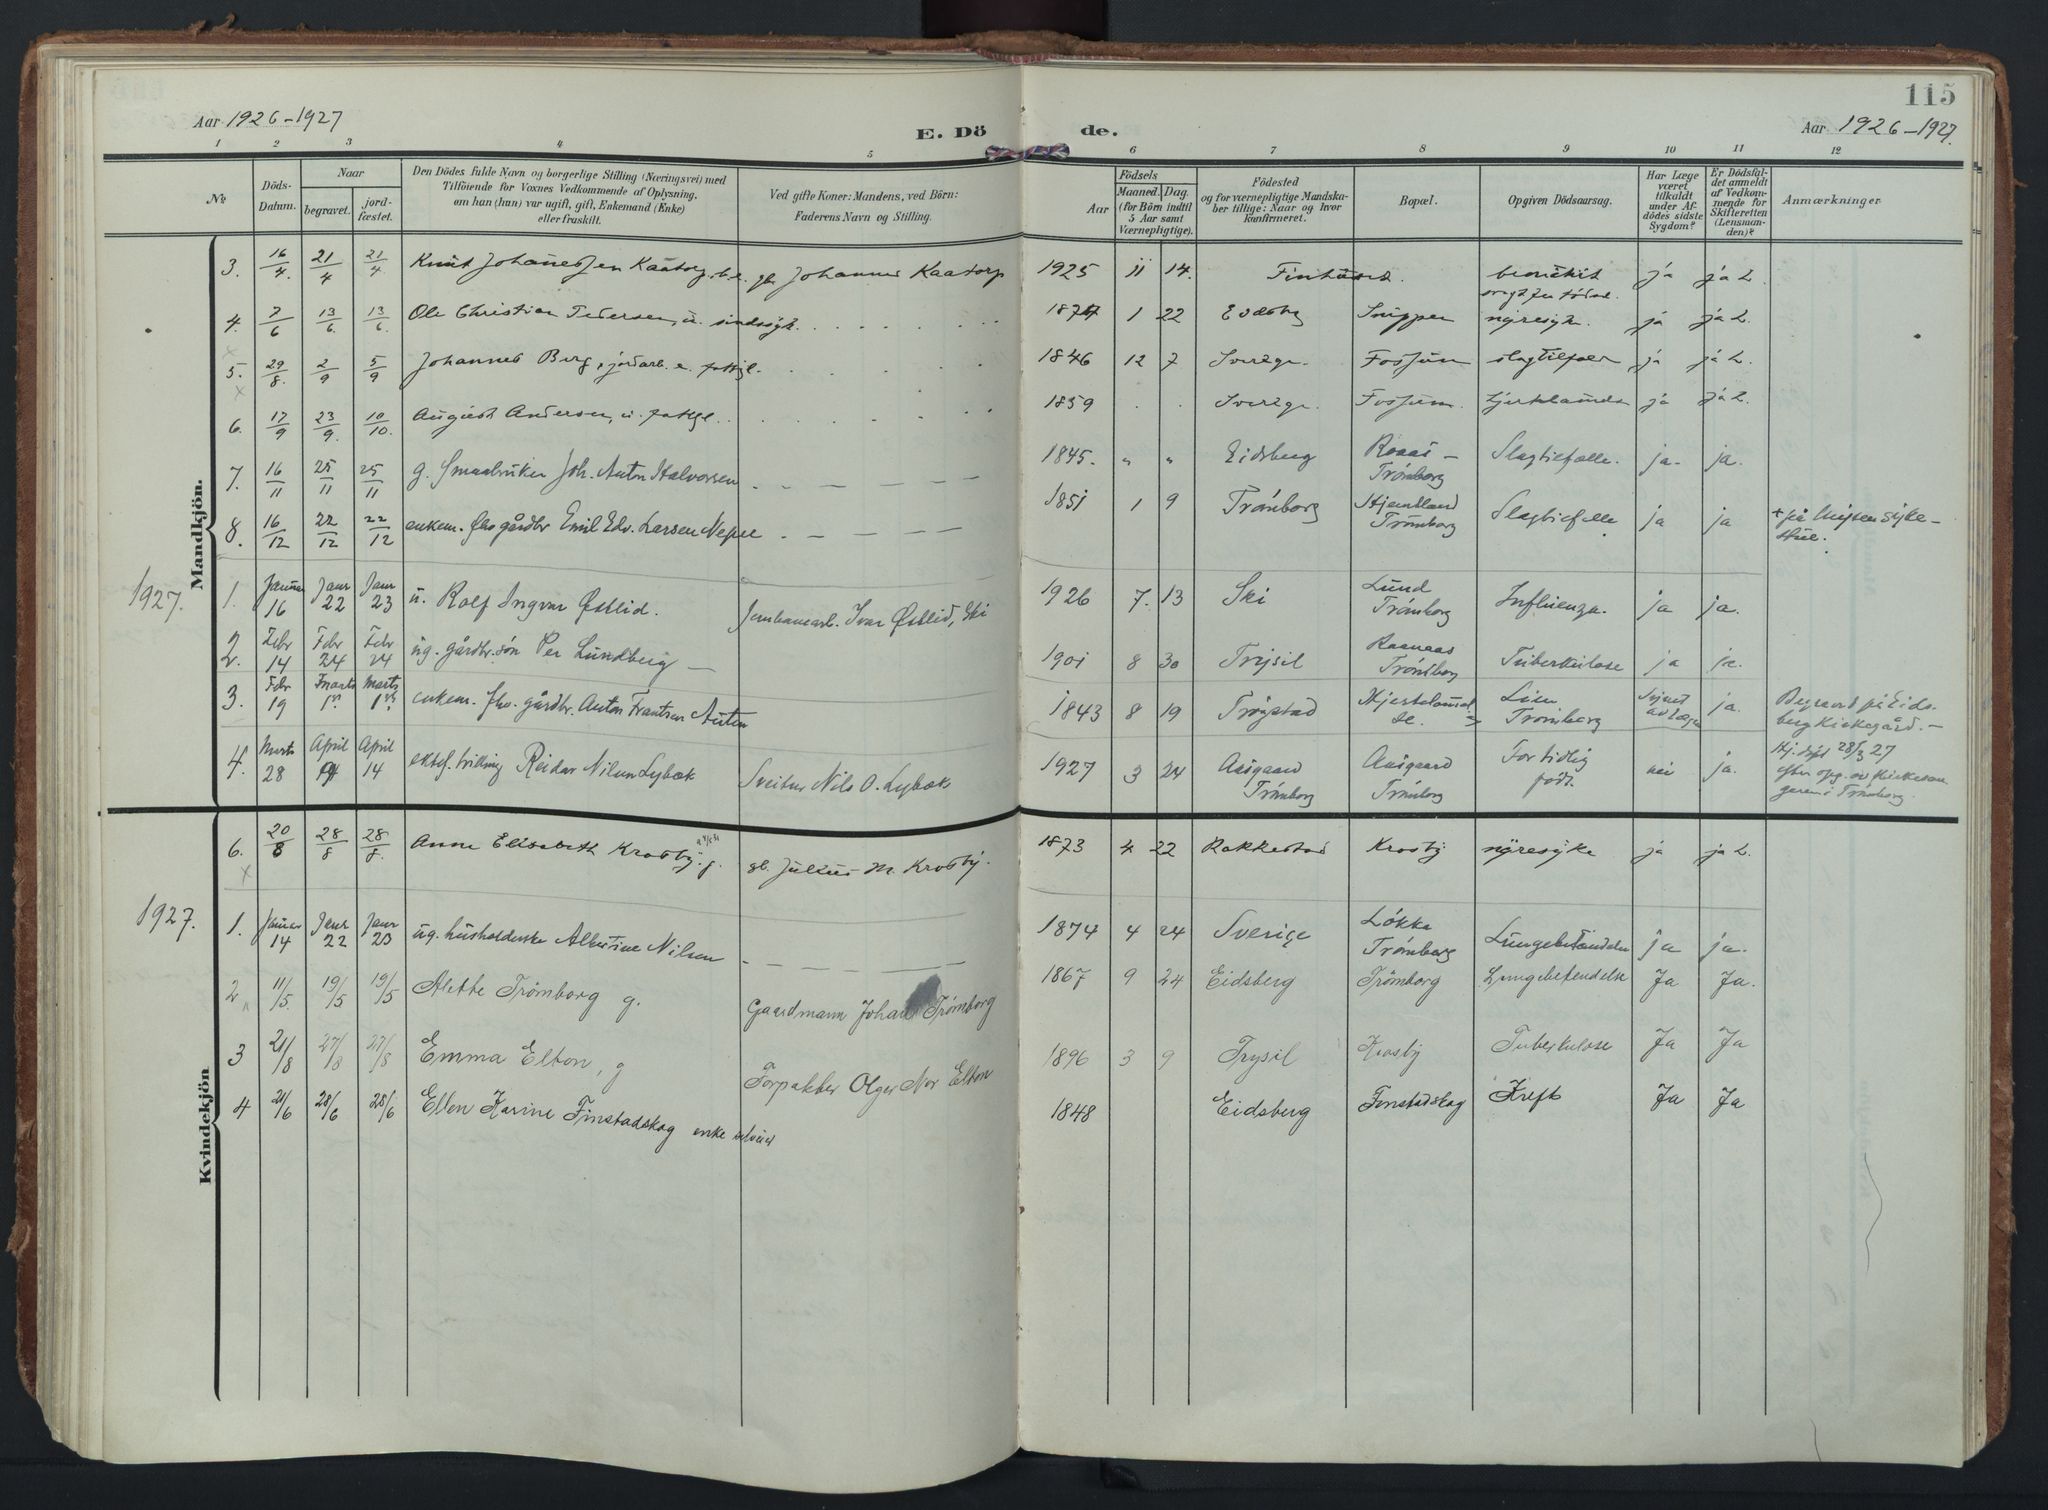 115
Aar 1926-1927
E. Dö
de.
Aar 1926-1927.
1 2 3 4 5 6 7 8 9 10 11 12
№
Döds-Datum.
Naar
begravet.
jord-fæstet.
Den Dödes fulde Navn og borgerlige Stilling (Næringsvei) med
Tilföiende for Voxnes Vedkommende af Oplysning,
om han (hun) var ugift, gift, Enkemand (Enke)
eller fraskilt.
Ved gifte Koner: Mandens, ved Börn:
Faderens Navn og Stilling.
Födsels
Aar
Maaned. Dag.
(for Börn indtil
5 Aar samt
Værnepligtige).
Födested
og for værnepligtige Mandska-
ber tillige: Naar og hvor
konfirmeret.
Bopæl.
Opgiven Dödsaarsag.
Har Læge
været
tilkaldt
under Af-
dödes sidste
Sygdom?
Er Dödsfal-
det anmeldt
af Vedkom-
mende for
Skifteretten
(Lensman-
den)?
Anmærkninger
Mandkjön.
3. 16/4 21/4 21/4 Knut Johannessen Kaatorp, gb. Johannes Kaatorp 1925 11 14. ja ja L.
4. 7/6 13/6 13/6 Ole Christian Pedersen, u. sindssyk. 1874 1 22 Eidsberg nyresyke. ja ja L.
5. 29/8 2/9 5/9 Johannes Berg, jordarb. e. 1846 12 7 Sverige. Fossum slagtilfæld ja ja L.
6. 17/9 23/9 10/10 August Andersen, u. 1859 Sverige. Fossum. ja ja L.
7. 16/11 25/11 25/11 g. Smaabruker Joh. Anton Halvorsen 1845. " " Eidsberg Raaas - Trömborg Slagtilfælle. ja. ja.
8. 16/12 22/12 22/12 enkem. fhv. gårdbr Emil Edv. Larsen 1851 1 9 Trömborg Trömborg Slagtilfelle ja ja + på Mysen Syke-hus.
1927.
1. Januar 16 Janr 22 Janr 23 u. Rolf Ingvar Østlid. Jernbanearb. Ivar Østlid, Ski 1926 7. 13 Ski Lund Trömborg Influenza. ja ja.
2. Febr 14 Febr 24 Febr 24 ug. gårdbr.søn Per Lundberg 1901 8 30 Trysil Trömborg Tuberkulose ja ja.
3. Febr 19 Marts 1st Marts 1st enkem. fhv. gårdbr. Anton Frantsen 1843 8 19 Trøgstad Trömborg ja. Begravet på Eids-berg Kirkegård. -
4. Marts 28 April 14 April 14 ektef. tvilling Reidar Nilsen Lybæk Sveitser Nils O. Lybæk 1927 3 24 Aasgaard Trömborg Aasgaard Trömborg For tidlig født. nei ja. Hj. døpt 28/3 27 efter opg. av Kirkesangeren i Trömborg.
Kvindekjön
6. 20/8 28/8 28/8. Anne Elisabeth Krosby. g. gb. Julius M. Krosby. 1873 4 22 Rakkestad Krosby nyresyke ja ja L.
1927.
1. Januar 14 Janr 22 Janr 23 ug. husholderske Albertine Nilsen 1874 4 24 Sverige Lökka Trömborg Lungebetændelse ja ja.
2 11/5 19/5 19/5 Alette Trömborg g. Gaardmann Johan Trömborg 1867 9 24 Eidsberg Trömborg Lungebetendelse Ja Ja.
3 21/8 27/8 27/8 Emma Elton, g Forpakter Olger Nor Elton 1896 3 9 Trysil Krosby Tuberkulose Ja Ja
4 21/6 28/6 28/6 Ellen Karine Finstadskog enke 1848 Eidsberg Finstadskog Kreft Ja Ja